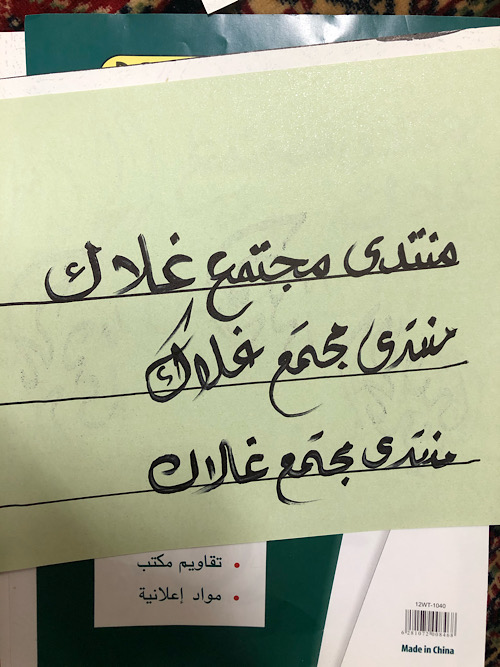 منتدى مجتمع غلاك
منتدى مجتمع غلاك
منتدى مجتمع غلاك
• تقاويم مكتب
• مواد إعلانية
12WT-1040
6 281072 008468
Made in China